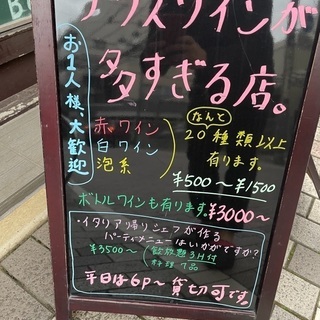 グラスワインが
多すぎる店。
お1人様、大歓迎
赤ワイン
白ワイン
泡系
なんと
20種類以上
有ります。
¥500〜¥1500
ボトルワインも有ります。¥3000〜
・イタリア帰りシェフが作る
パーティーメニューはいかがですか?
¥3500〜(飲放題3H付
料理7品
平日は6P〜貸切可です。